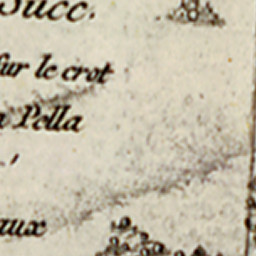 Succ.
sur le crot
a Pella
aux